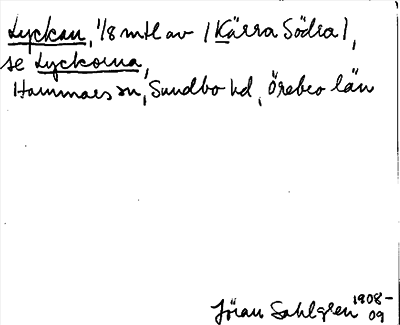 Lyckan, 1/8 mtl av /Kärra Södra/,
se Lyckorna,
Hammars sn, Sundbo hd, Örebro län
Jöran Sahlgren 1908-
09